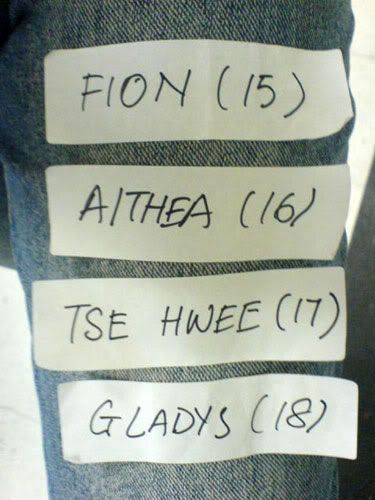 FION (15)
AlTHEA (16)
TSE HWEE (17)
GLADYS (18)